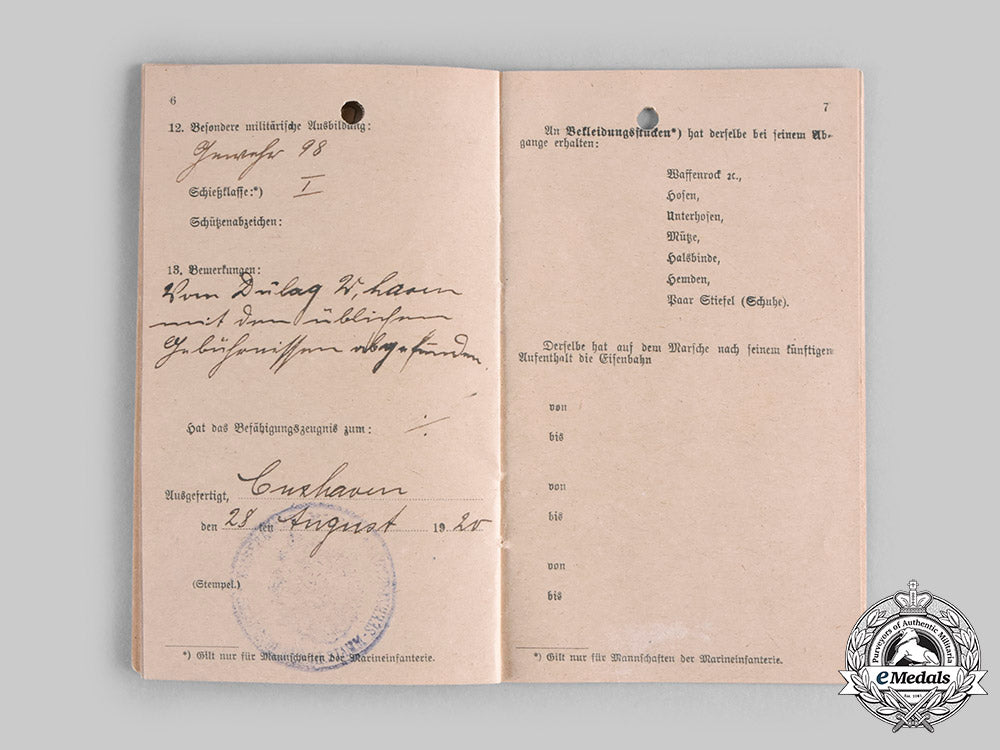 6
12. Besondere militärische Ausbildung:
Gewehr 98
Schießklasse:*) I
Schützenabzeichen:
13. Bemerkungen:
Vom Dulag W,haven
mit den üblichen
Gebührnissen abgefunden.
Hat das Befähigungszeugnis zum: ./.
Ausgefertigt, Cuxhaven
den 28 ten August 1920
(Stempel.)
*) Gilt nur für Mannschaften der Marineinfanterie.
7
An Bekleidungsstücken*) hat derselbe bei seinem Ab-
gange erhalten:
Waffenrock ꝛc.,
Hosen,
Unterhosen,
Mütze,
Halsbinde,
Hemden,
Paar Stiefel (Schuhe).
Derselbe hat auf dem Marsche nach seinem künftigen
Aufenthalt die Eisenbahn
von
bis
von
bis
von
bis
*) Gilt nur für Mannschaften der Marineinfanterie.
Purveyors of Authentic Militaria
eMedals